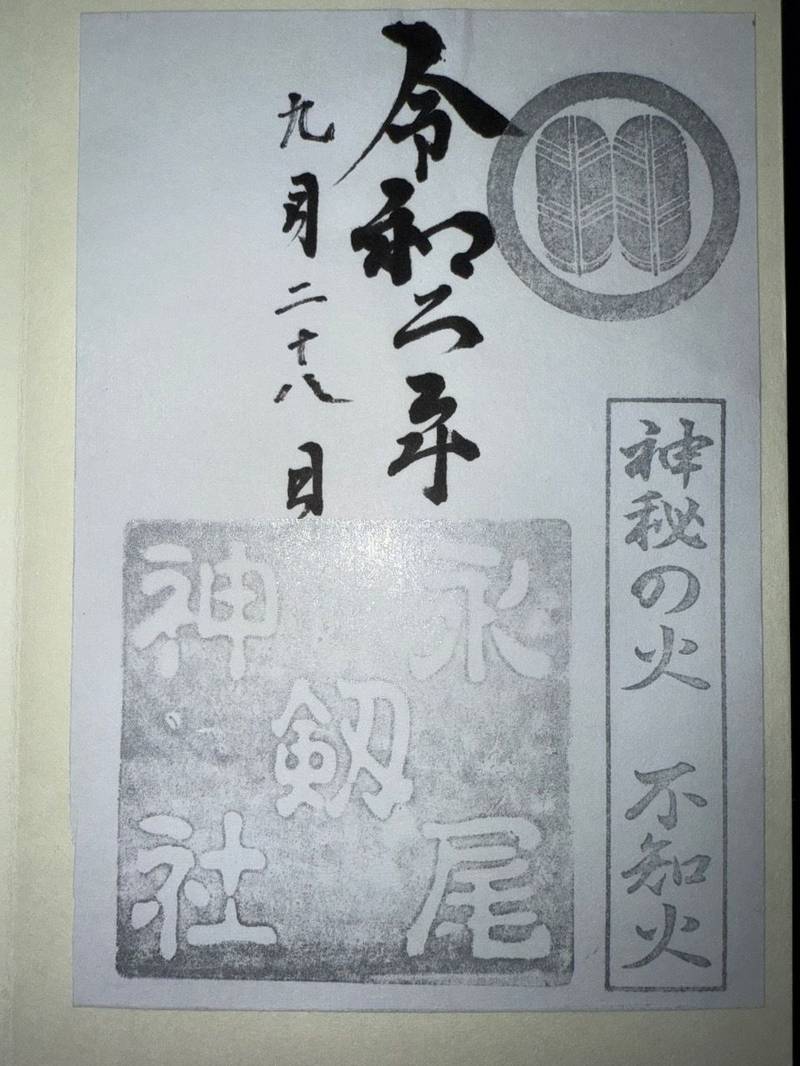 神秘の火　不知火
令和六年
九月二十八日
永尾
剱
神社